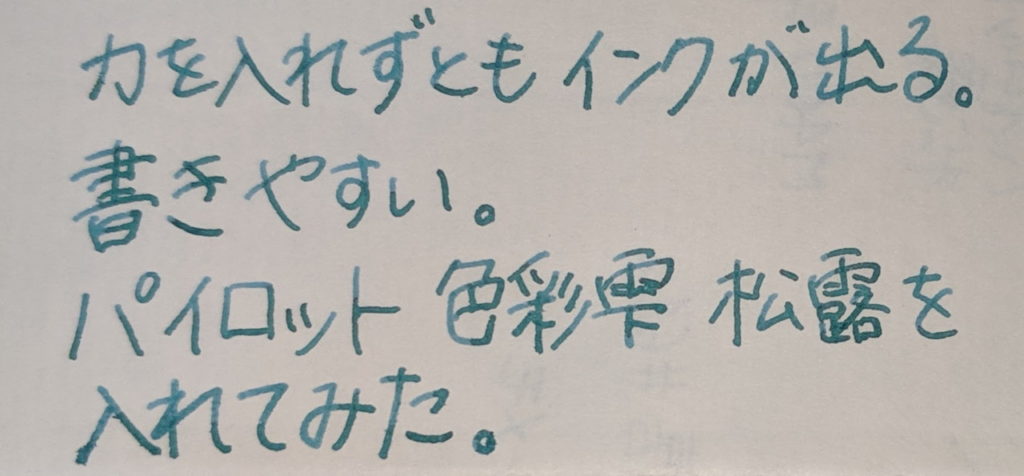 力を入れずともインクが出る。
書きやすい。
パイロット 色彩雫 松露を
入れてみた。